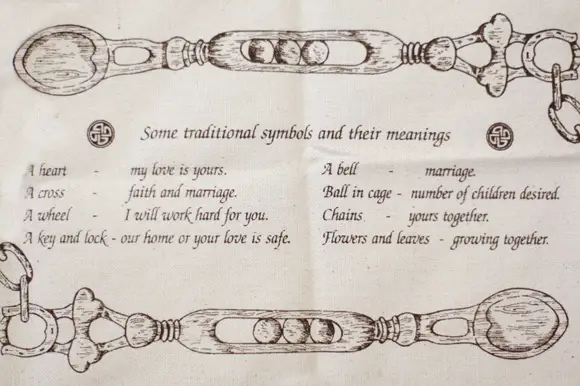 Some traditional symbols and their meanings
A heart - my love is yours.
A cross - faith and marriage.
A wheel - I will work hard for you.
A key and lock - our home or your love is safe.
A bell - marriage.
Ball in cage - number of children desired.
Chains - yours together.
Flowers and leaves - growing together.